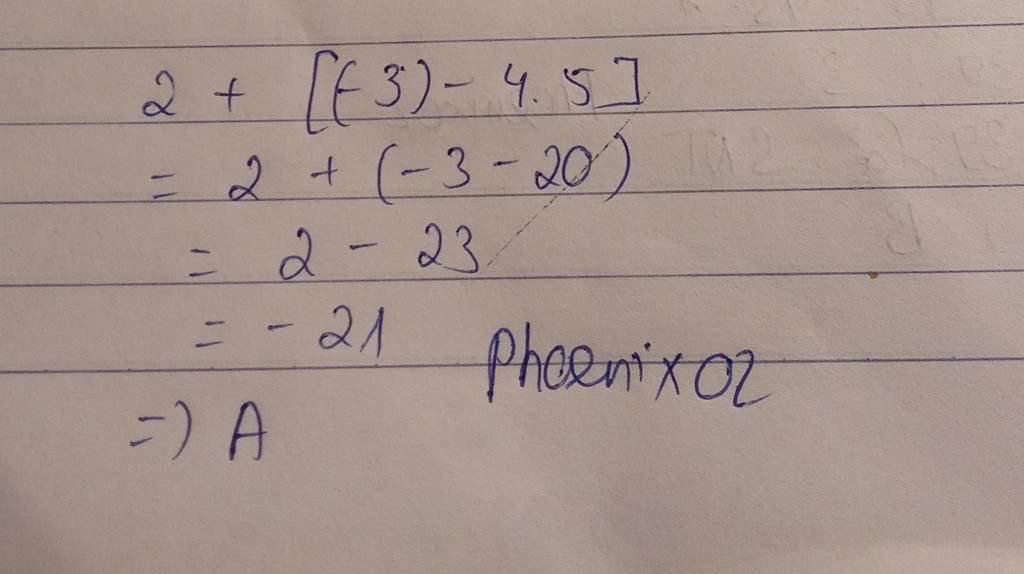 2 + [(-3) - 4.5]
= 2 + (-3 - 20)
= 2 - 23
= - 21
Phoenix02
=) A